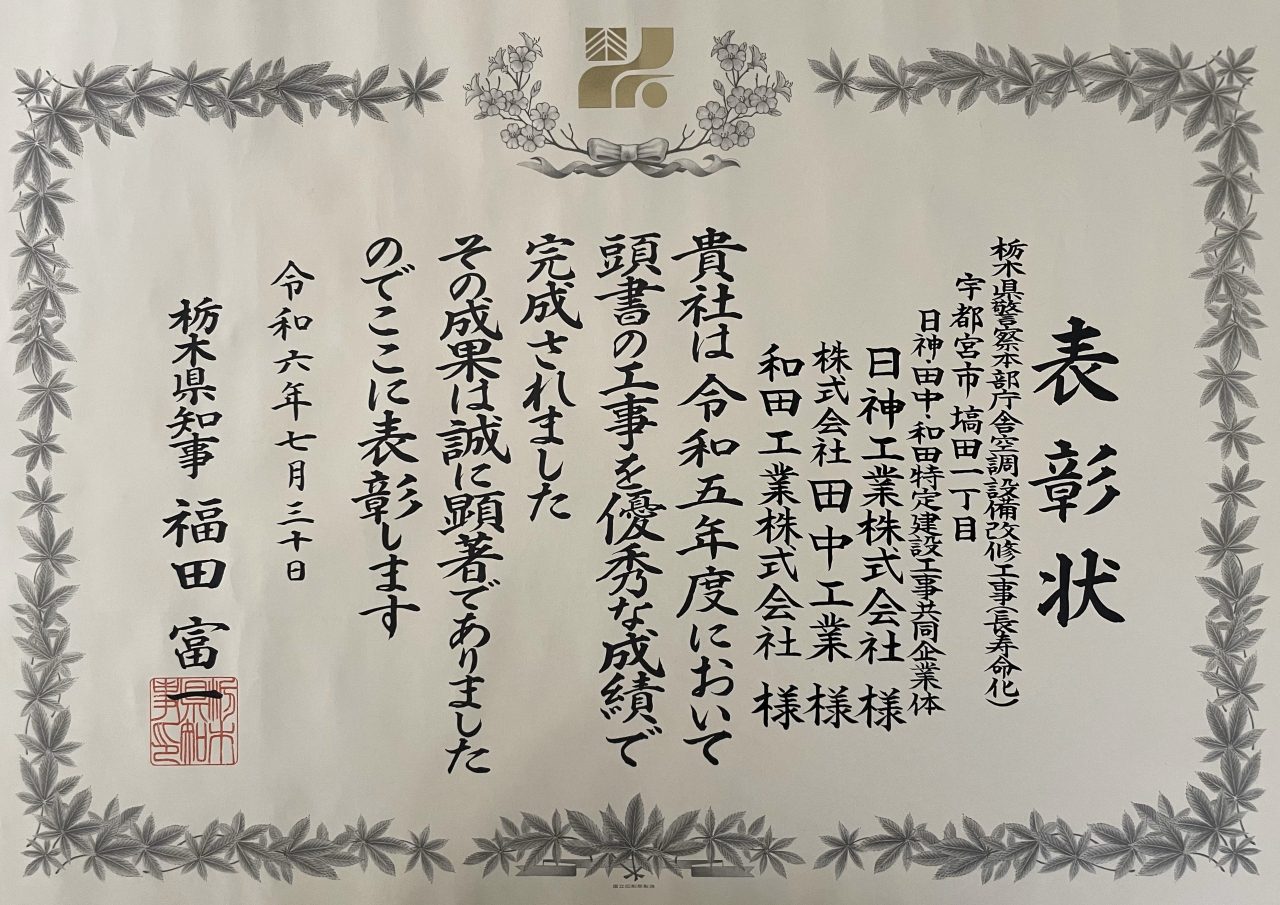 表彰状
栃木県警察本部庁舎空調設備改修工事(長寿命化)
宇都宮市 塙田一丁目
日神・田中・和田特定建設工事共同企業体
日神工業株式会社 様
株式会社田中工業 様
和田工業株式会社 様
貴社は令和五年度において
頭書の工事を優秀な成績で
完成されました
その成果は誠に顕著でありました
のでここに表彰します
令和六年七月三十日
栃木県知事 福田富一
栃木県知事印